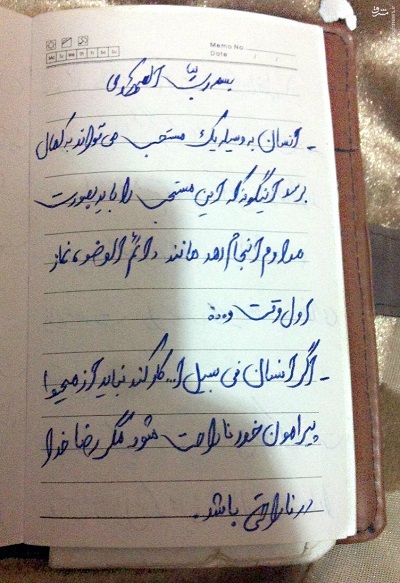 Memo No
Date / /
بسم رب
- انسان به وسیله یک مستحب می تواند به کمال
برسد اینگونه که این مستحب را باید بصورت
مداوم انجام دهد مانند دائم الوضو، نماز
اول وقت و ...
- اگر انسان فی سبیل ا... کار کند نباید از
پیرامون خود ناراحت شود مگر رضا خدا
در ناراحتی باشد.